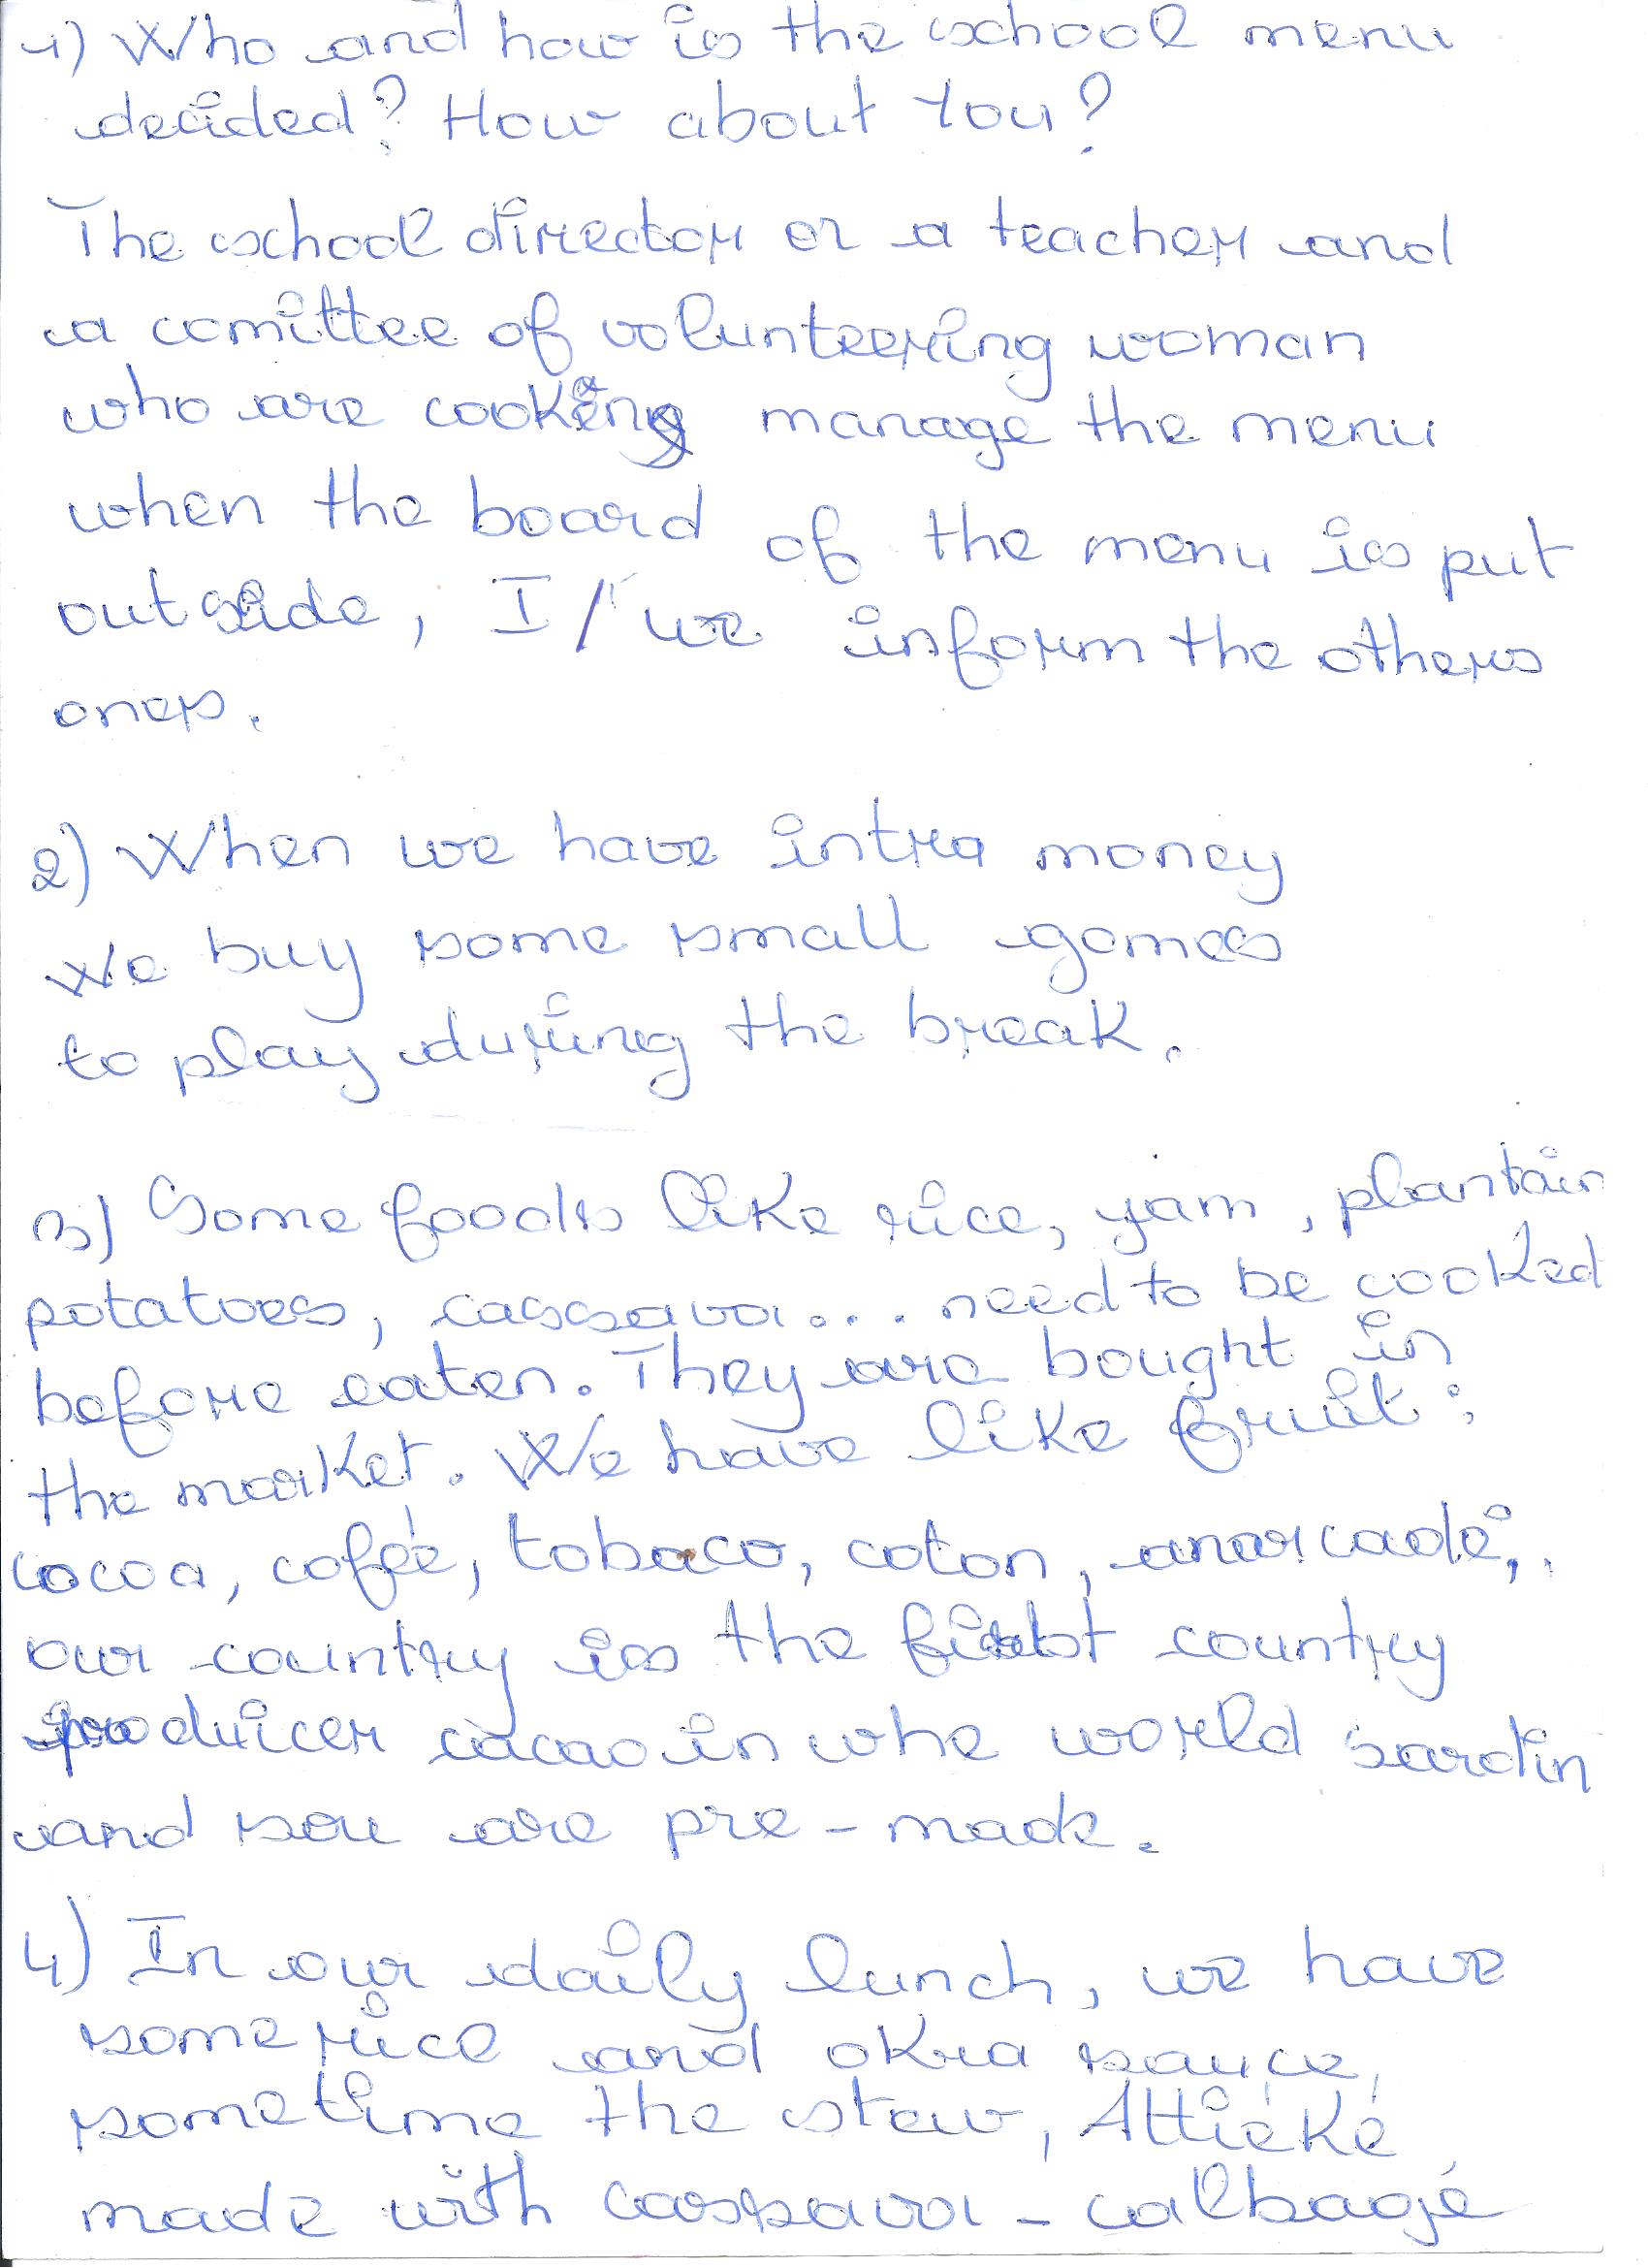 1) Who and how is the school menu
decided? How about You?
The school director or a teacher and
a comittee of volunteering woman
who are cooking manage the menu
when the board of the menu is put
outside, I / we inform the others
ones.
2) When we have intra money
We buy some small games
to play during the break.
3) Some foods like rice, yam, plantain
potatoes, cassava... need to be cooked
before eaten. They are bought in
the market. We have like fruit :
cocoa, cofée, tobaco, coton, anarcade,
our country is the first country
producer cacao in whe world sardin
and sou are pre-made.
4) In our daily lunch, we have
some rice and okra sauce,
sometime the stew, Attiéké
made with cassava - calbage